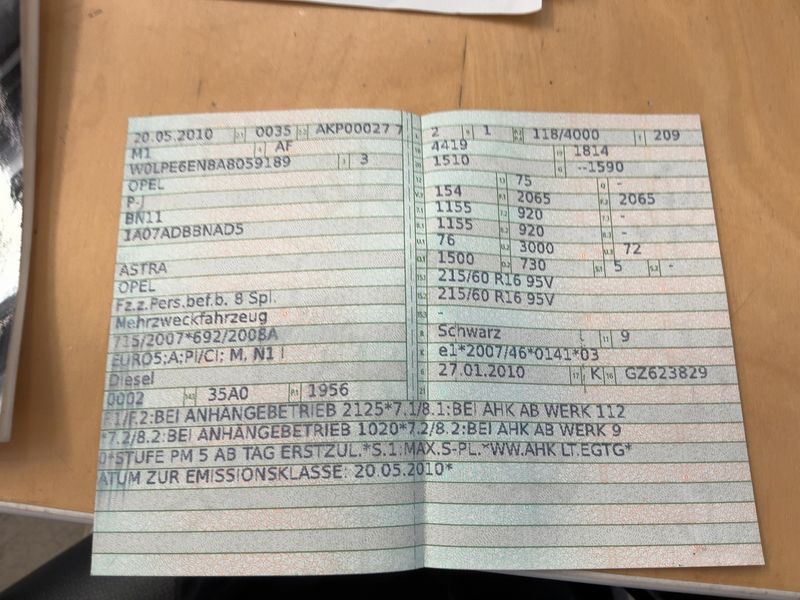 20.05.2010 0035 AKP00027 7
M1 AF
W0LPE6EN8A8059189 3
OPEL
P-J
BN11
1A07ADBBNAD5
ASTRA
OPEL
Fz.z.Pers.bef.b. 8 Spl.
Mehrzweckfahrzeug
715/2007*692/2008A
EURO5;A;PI/CI; M, N1 I
Diesel
0002 35A0 1956
2 1 118/4000 209
4419 1814
1510 --1590
75 -
154 2065 2065
1155 920 -
1155 920 -
76 3000 72
1500 730 5 -
215/60 R16 95V
215/60 R16 95V
-
Schwarz 9
e1*2007/46*0141*03
27.01.2010 K GZ623829
F.1/F.2:BEI ANHÄNGEBETRIEB 2125*7.1/8.1:BEI AHK AB WERK 112
*7.2/8.2:BEI ANHÄNGEBETRIEB 1020*7.2/8.2:BEI AHK AB WERK 9
0*STUFE PM 5 AB TAG ERSTZUL.*S.1:MAX.S-PL.*WW.AHK LT.EGTG*
ATUM ZUR EMISSIONSKLASSE: 20.05.2010*